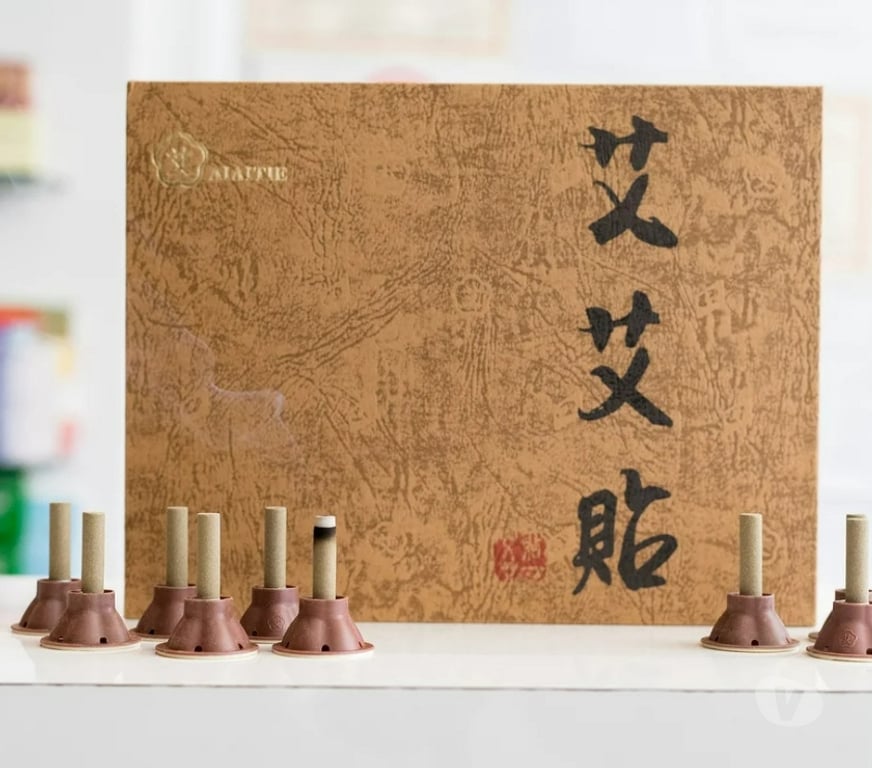 AIAITIE
艾
艾
貼